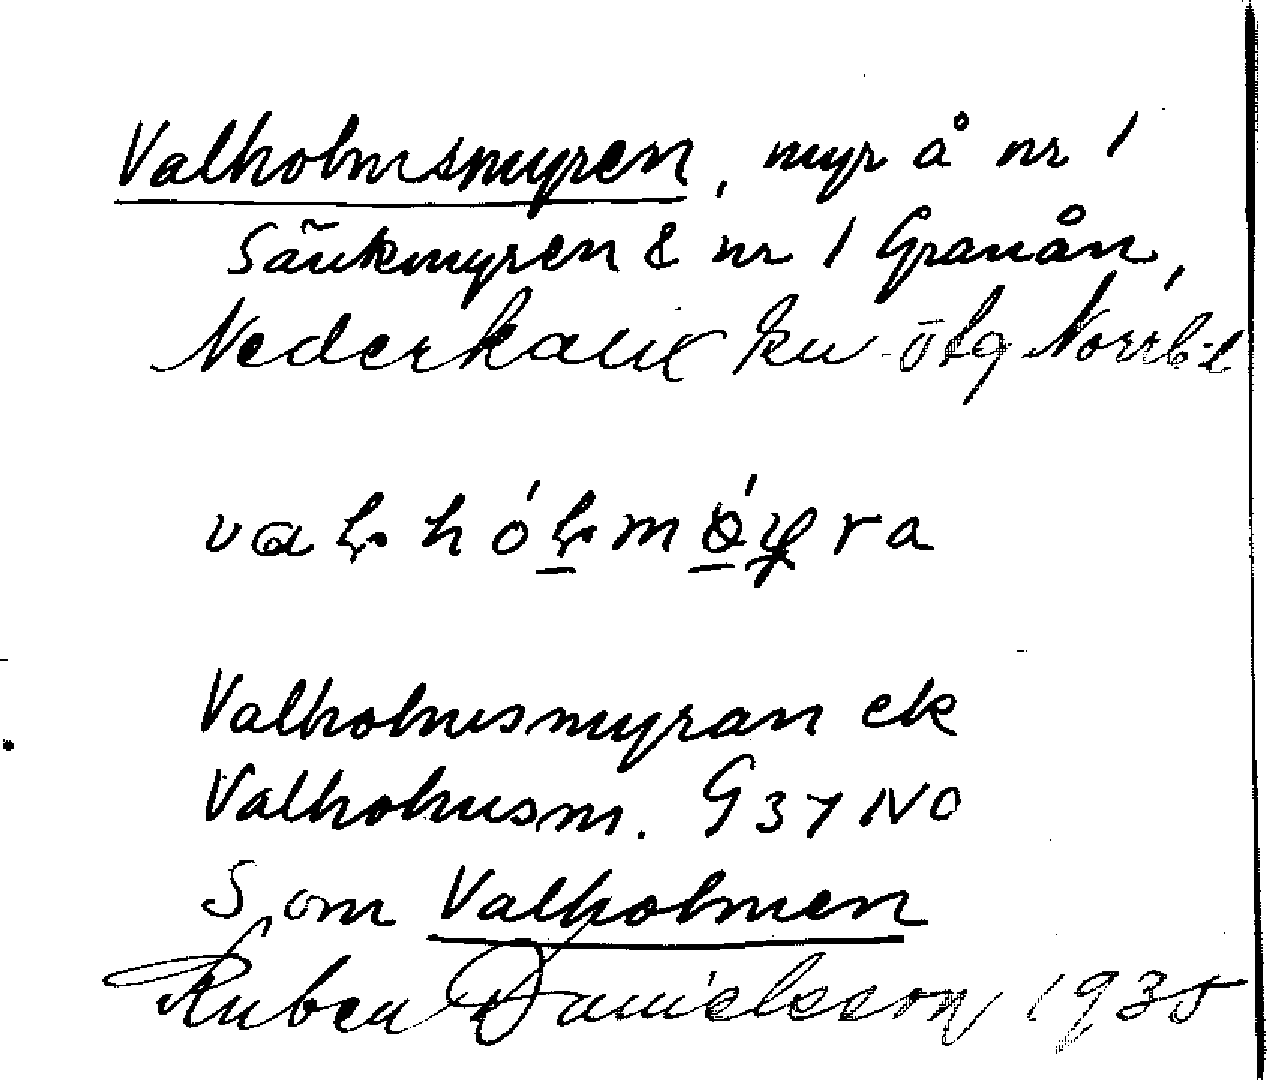 Valholmsmyren, myr å nr 1
Sänkmyren & nr 1 Granån,
Nederkalix kn ö fg Norrb. l
Valholmsmyran ek
Valholmsm. G 37 NO
S om Valholmen
Ruben Danielsson 1935